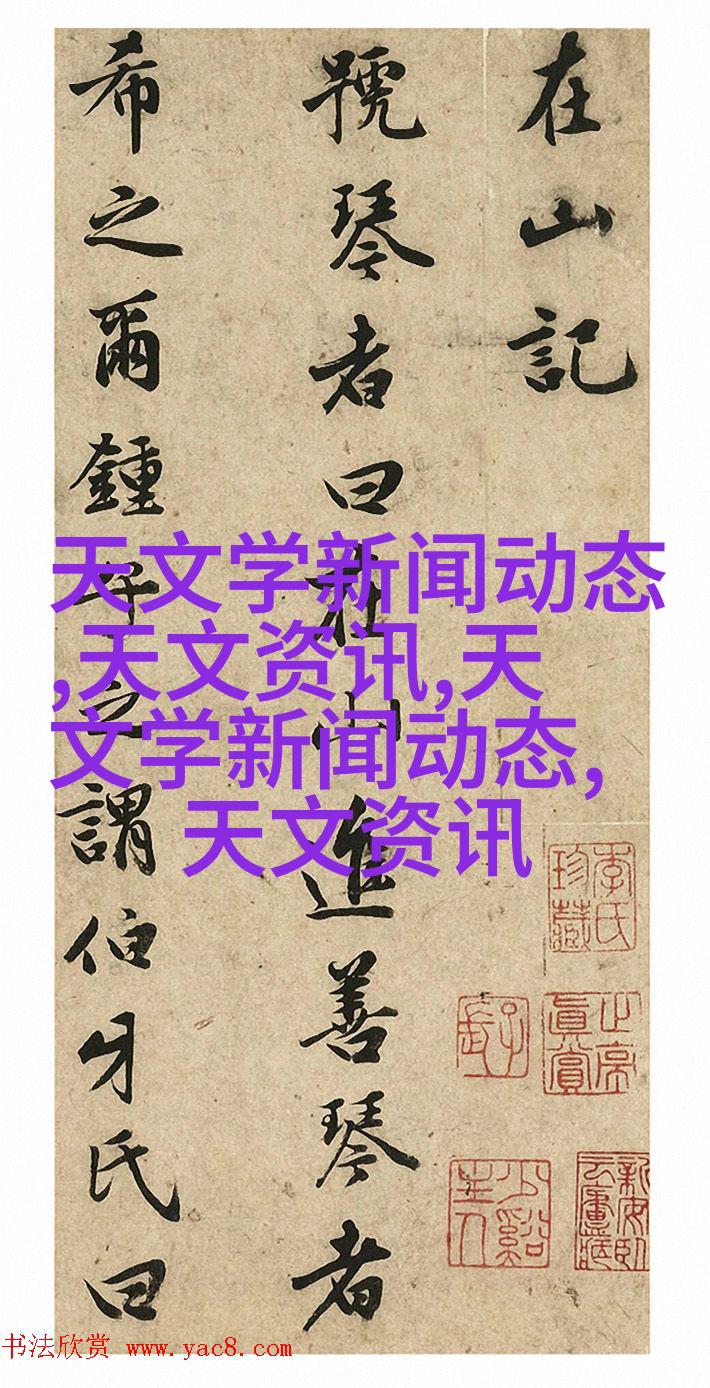 在山記
號琴者曰在山進善琴者
希之爾鍾子之謂伯牙氏曰
天文学新闻动态
,天文资讯,天
文学新闻动态,
天文资讯
少谿主人
书法欣赏 www.yac8.com